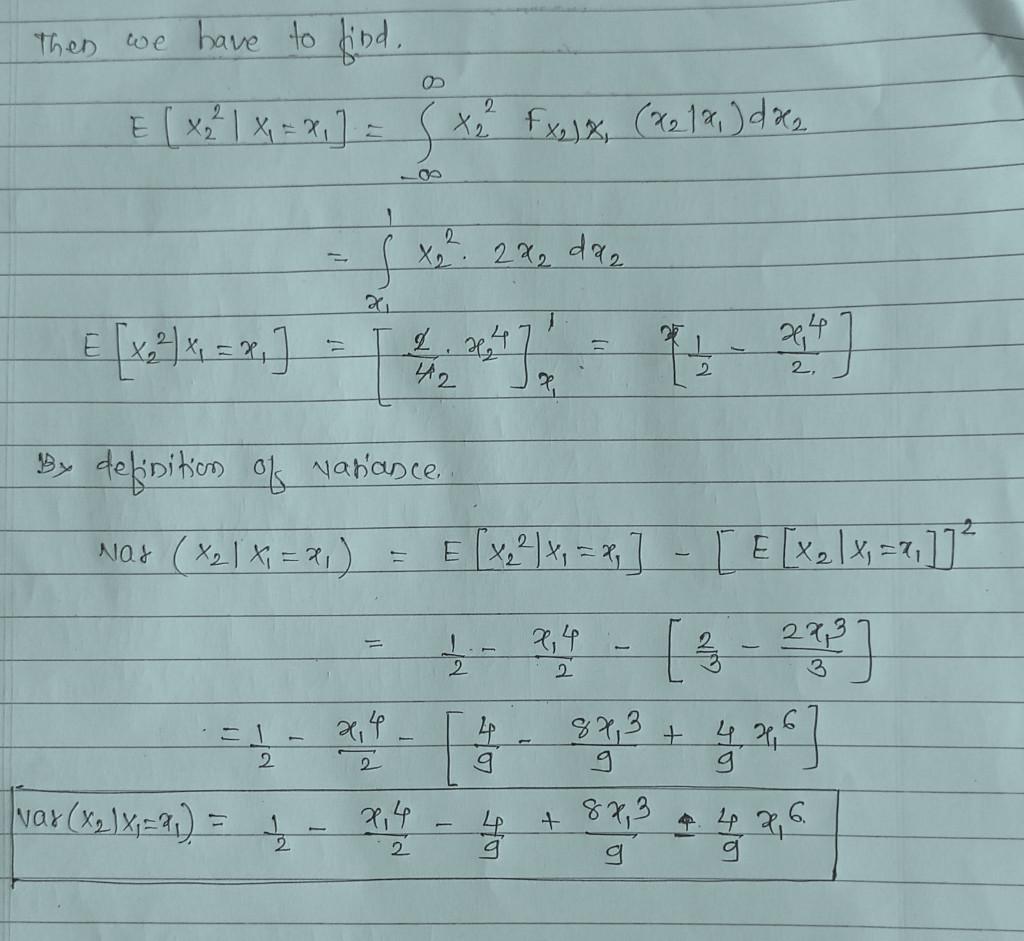 Then we have to find.
E [X₂² | X₁ = x₁] = ∫_{-∞}^{∞} X₂² f_{X₂|X₁} (x₂|x₁) dx₂
= ∫_{x₁}^{1} X₂² . 2x₂ dx₂
E [X₂² | X₁ = x₁] = [2/4 2 . x₂⁴]_{x₁}^{1} = [1/2 - x₁⁴/2.]
By definition of variance.
Var (X₂ | X₁ = x₁) = E [X₂² | X₁ = x₁] - [E [X₂ | X₁ = x₁]]²
= 1/2 - x₁⁴/2 - [2/3 - 2x₁³/3]
= 1/2 - x₁⁴/2 - [4/9 - 8x₁³/9 + 4/9 x₁⁶]
Var (X₂ | X₁ = x₁) = 1/2 - x₁⁴/2 - 4/9 + 8x₁³/9 - 4/9 x₁⁶.